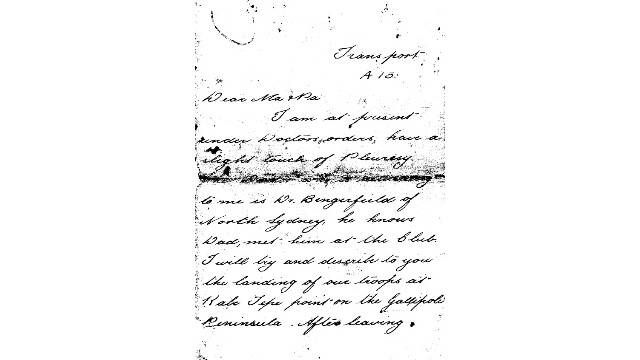 Transport
A 15.
Dear Ma & Pa
I am at present
under Doctors, orders, have a
slight touch of Pleuresy.
to me is Dr. Bengerfield of
North Sydney, he knows
Dad, met him at the Club.
I will try and describe to you
the landing of our troops at
Kabe Tepe point on the Gallipoli
Peninsula. After leaving